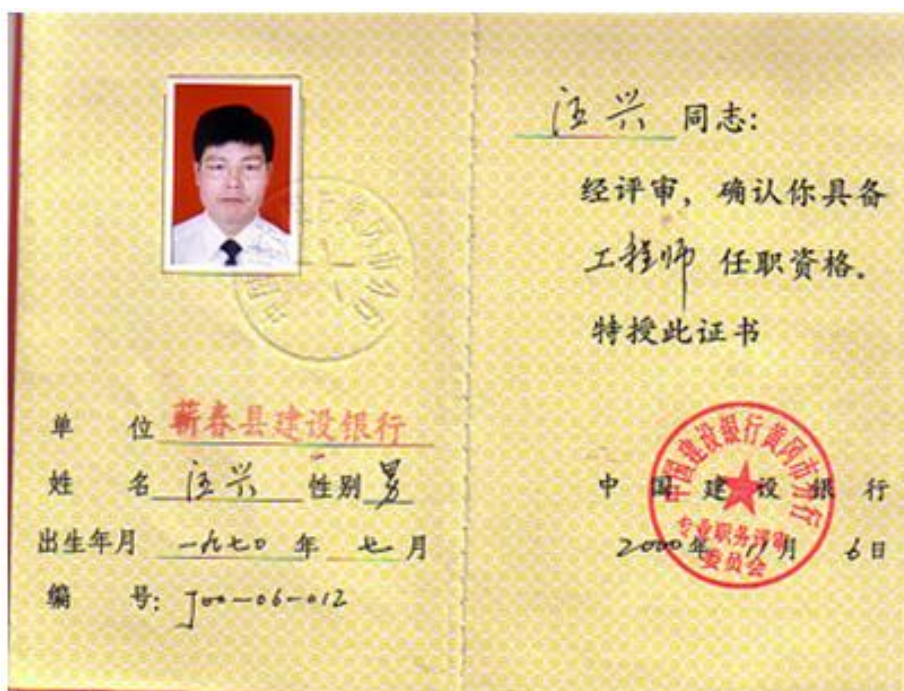 单 位 蕲春县建设银行
姓 名 汪兴 性别 男
出生年月 一九七〇 年 七 月
编 号: J00-06-012
汪兴 同志:
经评审,确认你具备
工程师 任职资格。
特授此证书
中国建设银行
2000年 11月 6日
中国建设银行黄冈市分行
专业职务评审
委员会